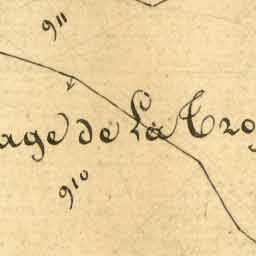 911
age de La Tro
910